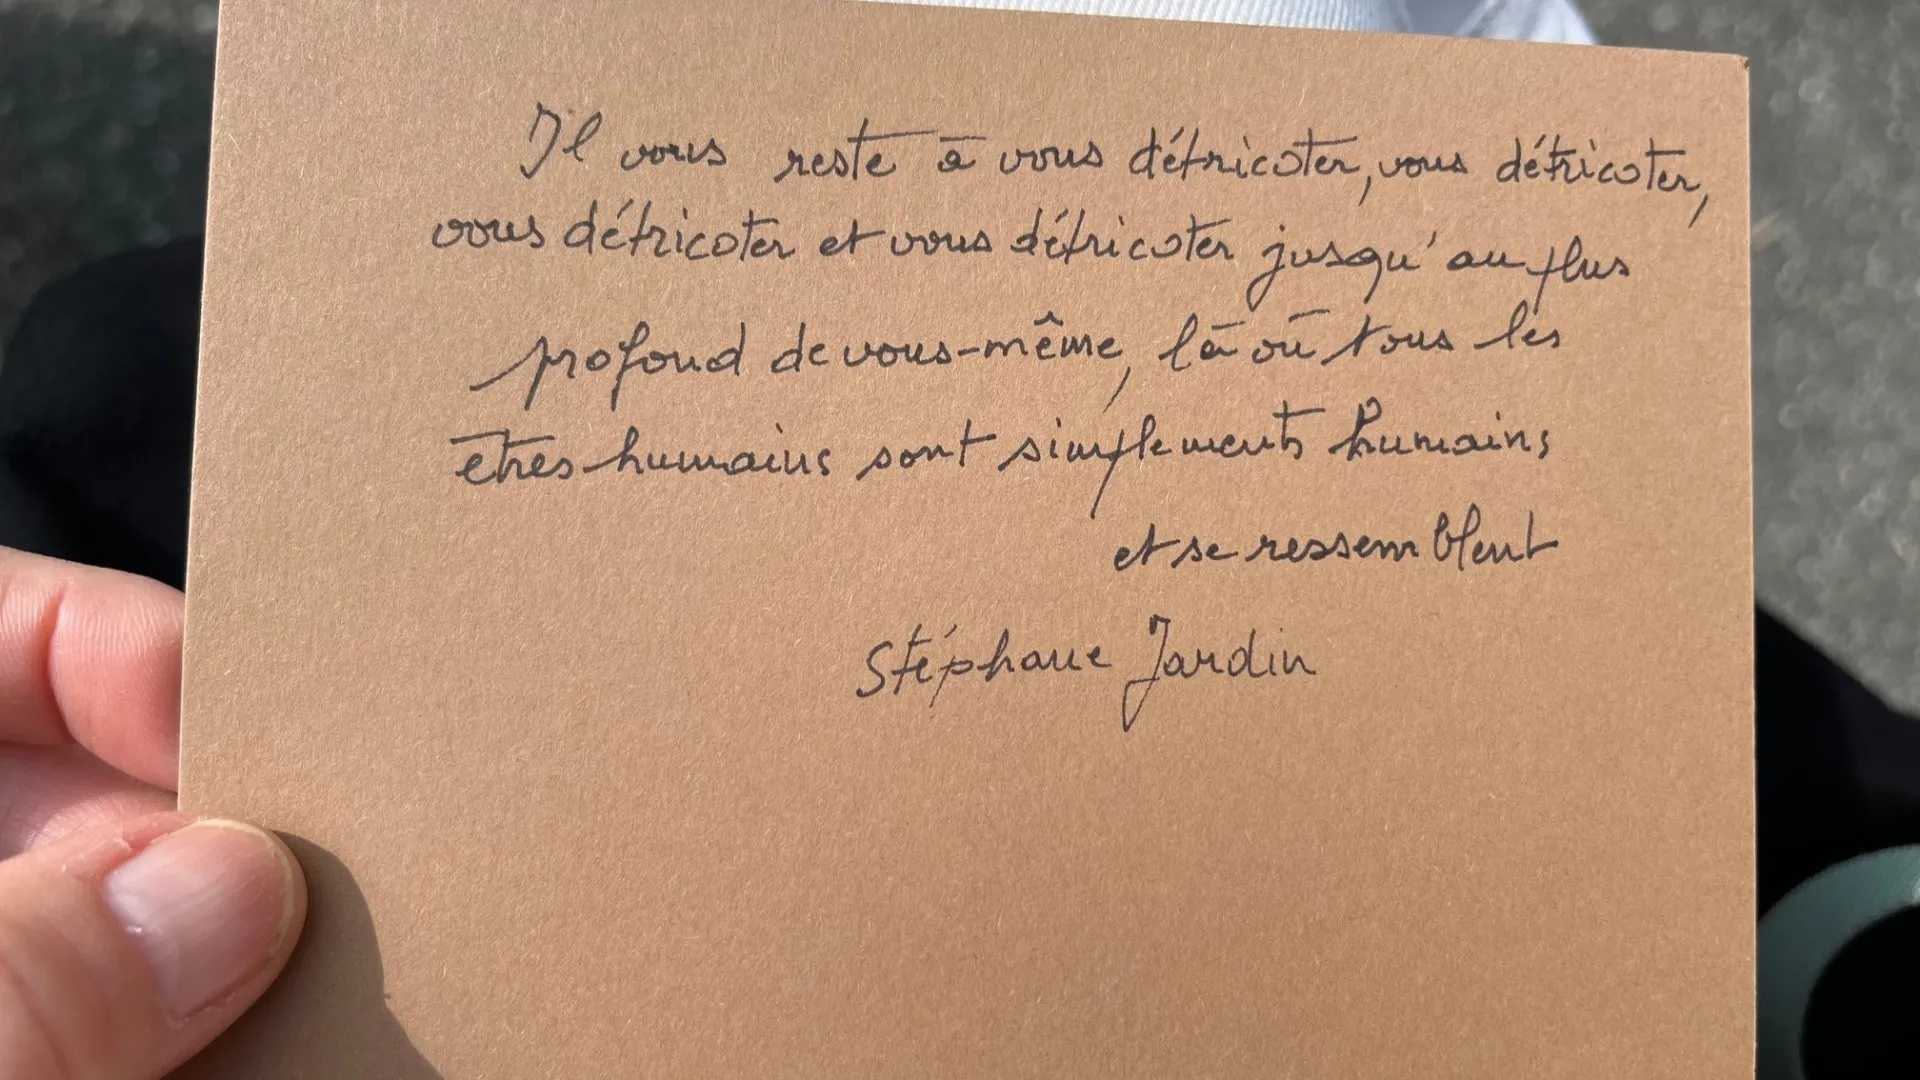 Il vous reste à vous détricoter, vous détricoter,
vous détricoter et vous détricoter jusqu'au plus
profond de vous-même, là où tous les
êtres humains sont simplements humains
et se ressemblent
Stéphane Jardin